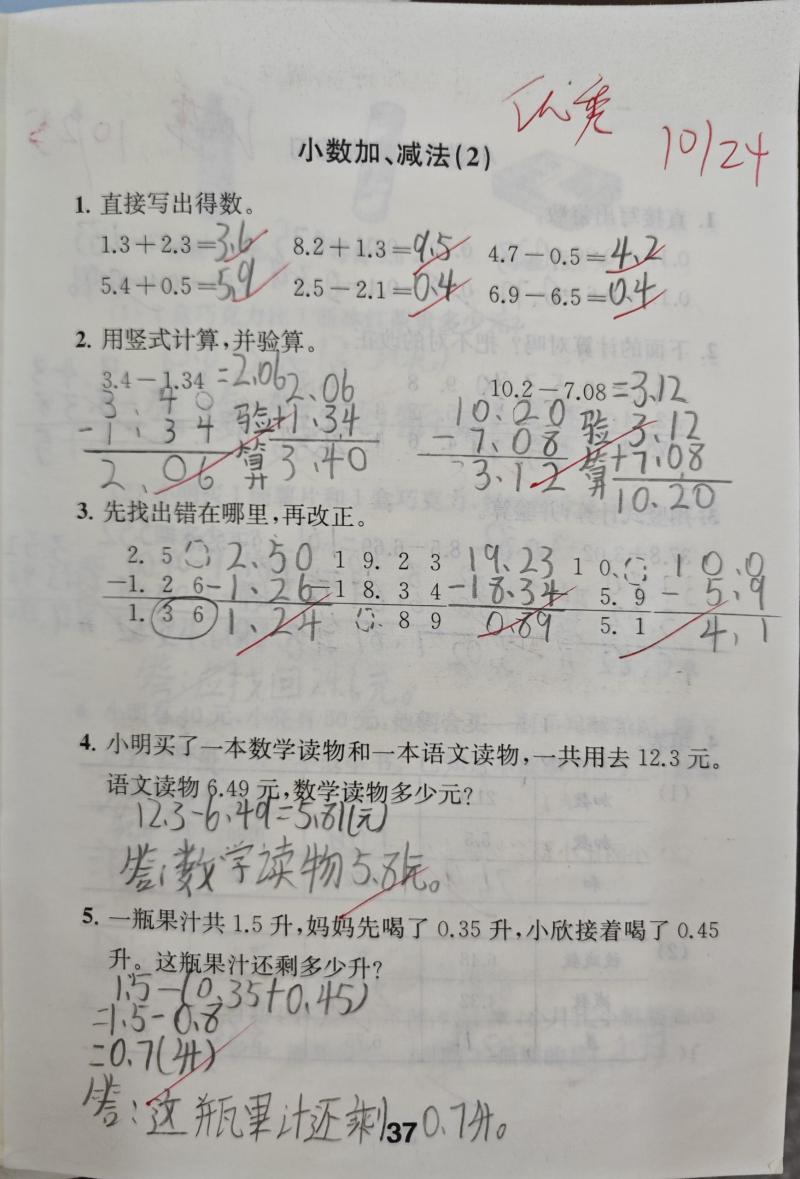 优秀
10/24
小数加、减法(2)
1. 直接写出得数。
1.3+2.3=3.6 8.2+1.3=9.5 4.7-0.5=4.2
5.4+0.5=5.9 2.5-2.1=0.4 6.9-6.5=0.4
2. 用竖式计算,并验算。
3.4-1.34=2.06 10.2-7.08=3.12
3.40 2.06 10.20 3.12
-1.34 验算 +1.34 -7.08 验算 +7.08
2.06 3.40 3.12 10.20
3. 先找出错在哪里,再改正。
2.50 2.50 19.23 19.23 10.0 10.0
-1.26 -1.26 -18.34 -18.34 5.9 -5.9
1.36 1.24 0.89 0.89 5.1 4.1
4. 小明买了一本数学读物和一本语文读物,一共用去 12.3 元。
语文读物 6.49 元,数学读物多少元?
12.3-6.49=5.81(元)
答:数学读物5.81元。
5. 一瓶果汁共 1.5 升,妈妈先喝了 0.35 升,小欣接着喝了 0.45
升。这瓶果汁还剩多少升?
1.5-(0.35+0.45)
=1.5-0.8
=0.7(升)
答:这瓶果汁还剩0.7升。
37